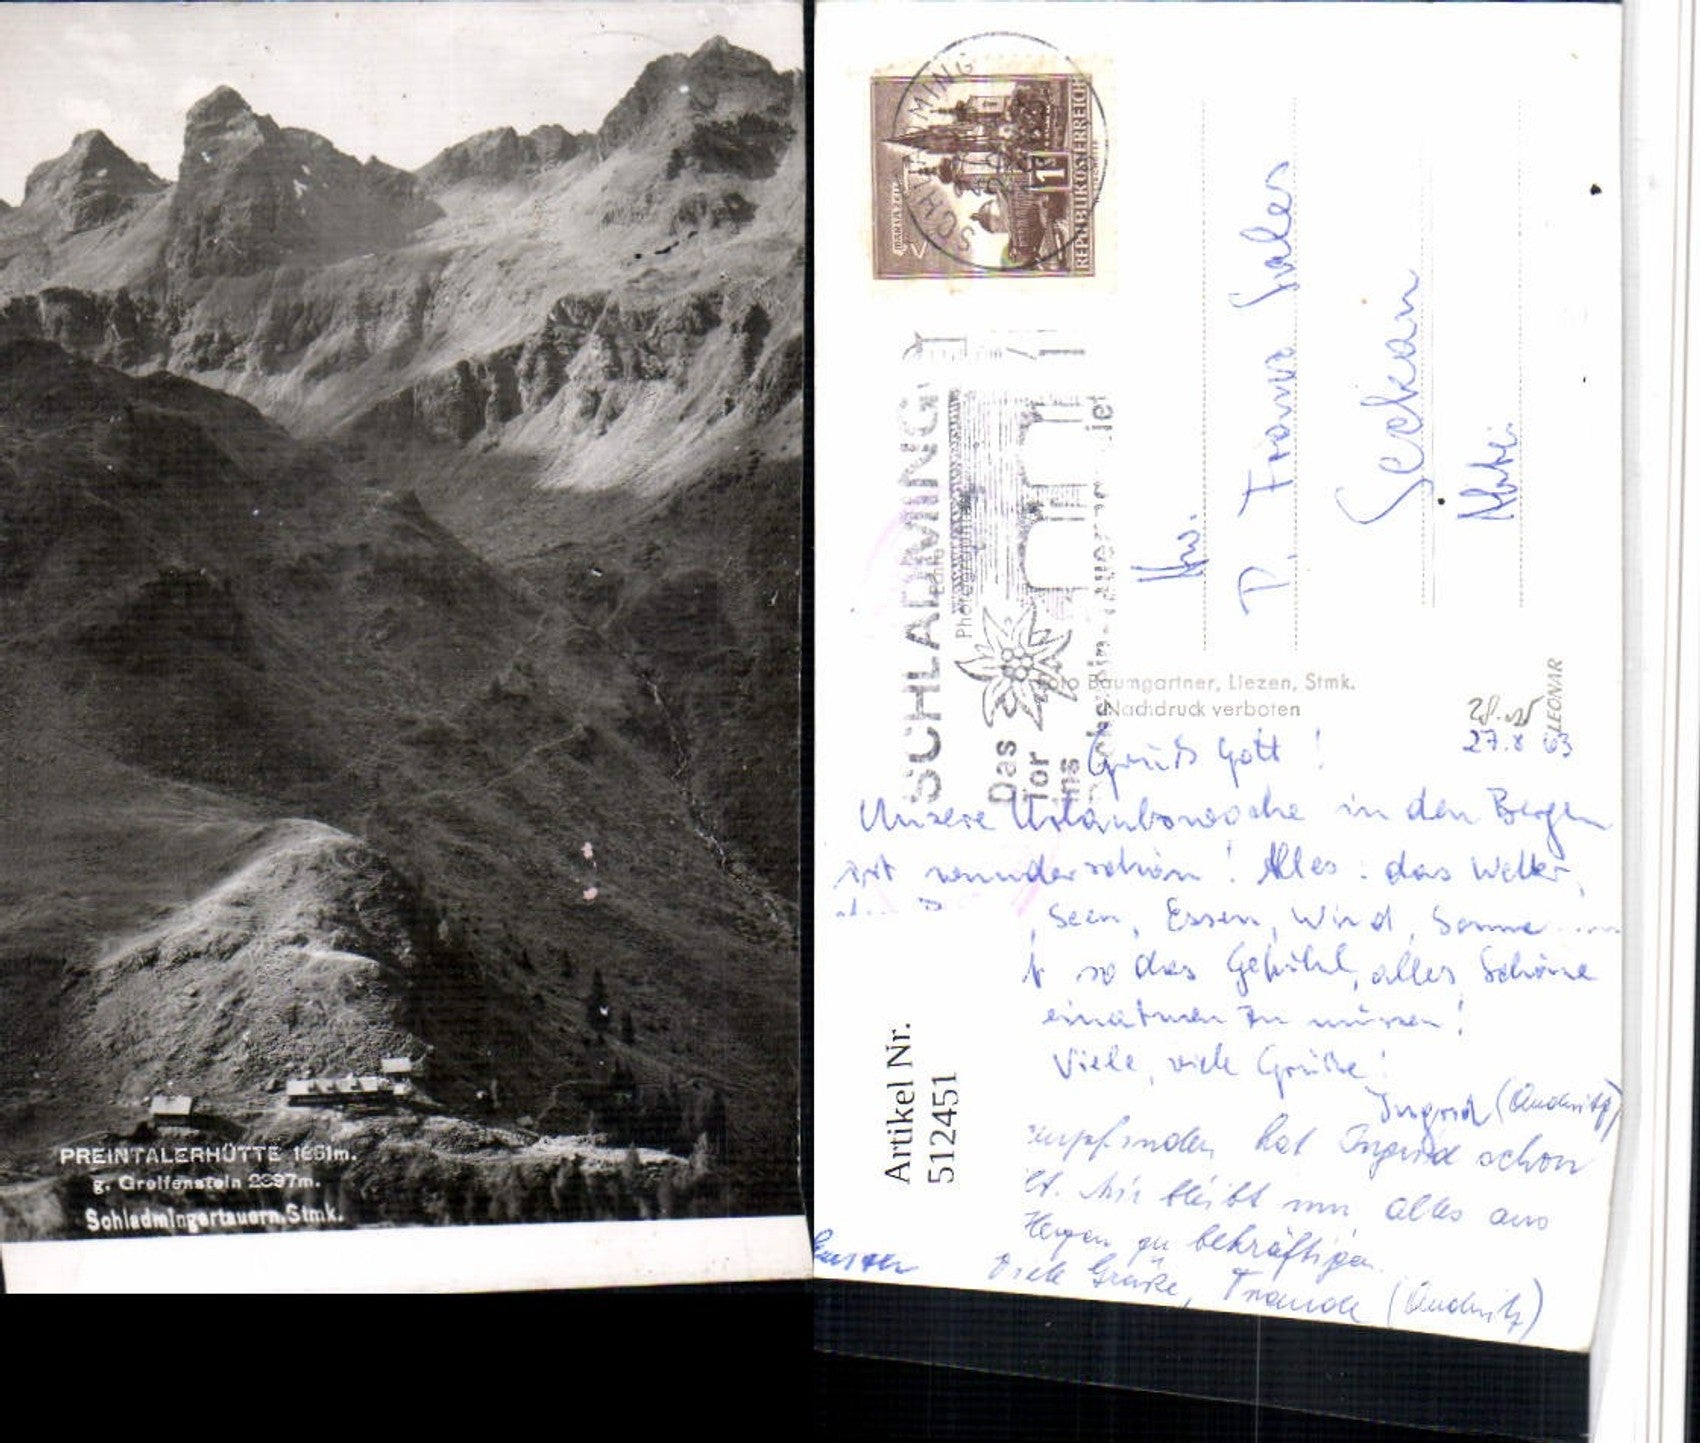 PREINTALERHÜTTE 1661m.
g. Greifenstein 2397m.
Schladmingertauern, Stmk.
SCHLADMING
MARIA ZELL
1S
REPUBLIK ÖSTERREICH
SCHLADMING
Das
Tor
ins
Dachstein-Tauerngebiet
P. Franz Sales
Seckau
Foto Baumgartner, Liezen, Stmk.
Nachdruck verboten
LEONAR
27.8 63
Grüß Gott!
Unsere Urlaubswoche in den Bergen
ist wunderschön! Alles: das Wetter,
Seen, Essen, Wind, Sonne
so das Gefühl, alles Schöne
einatmen zu müssen!
Viele, viele Grüße!
Ingrid (Andritz)
empfinden hat Ingrid schon
Mir bleibt nur, alles aus
Herzen zu bekräftigen.
Viele Grüße, Traude (Andritz)
Artikel Nr.
512451